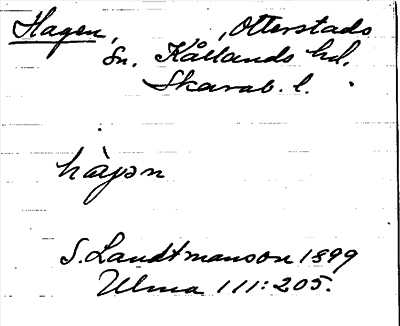 Hagen, , Otterstads
sn. Kållands hd,
Skarab. l.
hàgən
S. Landtmanson 1899
Ulma 111:205.